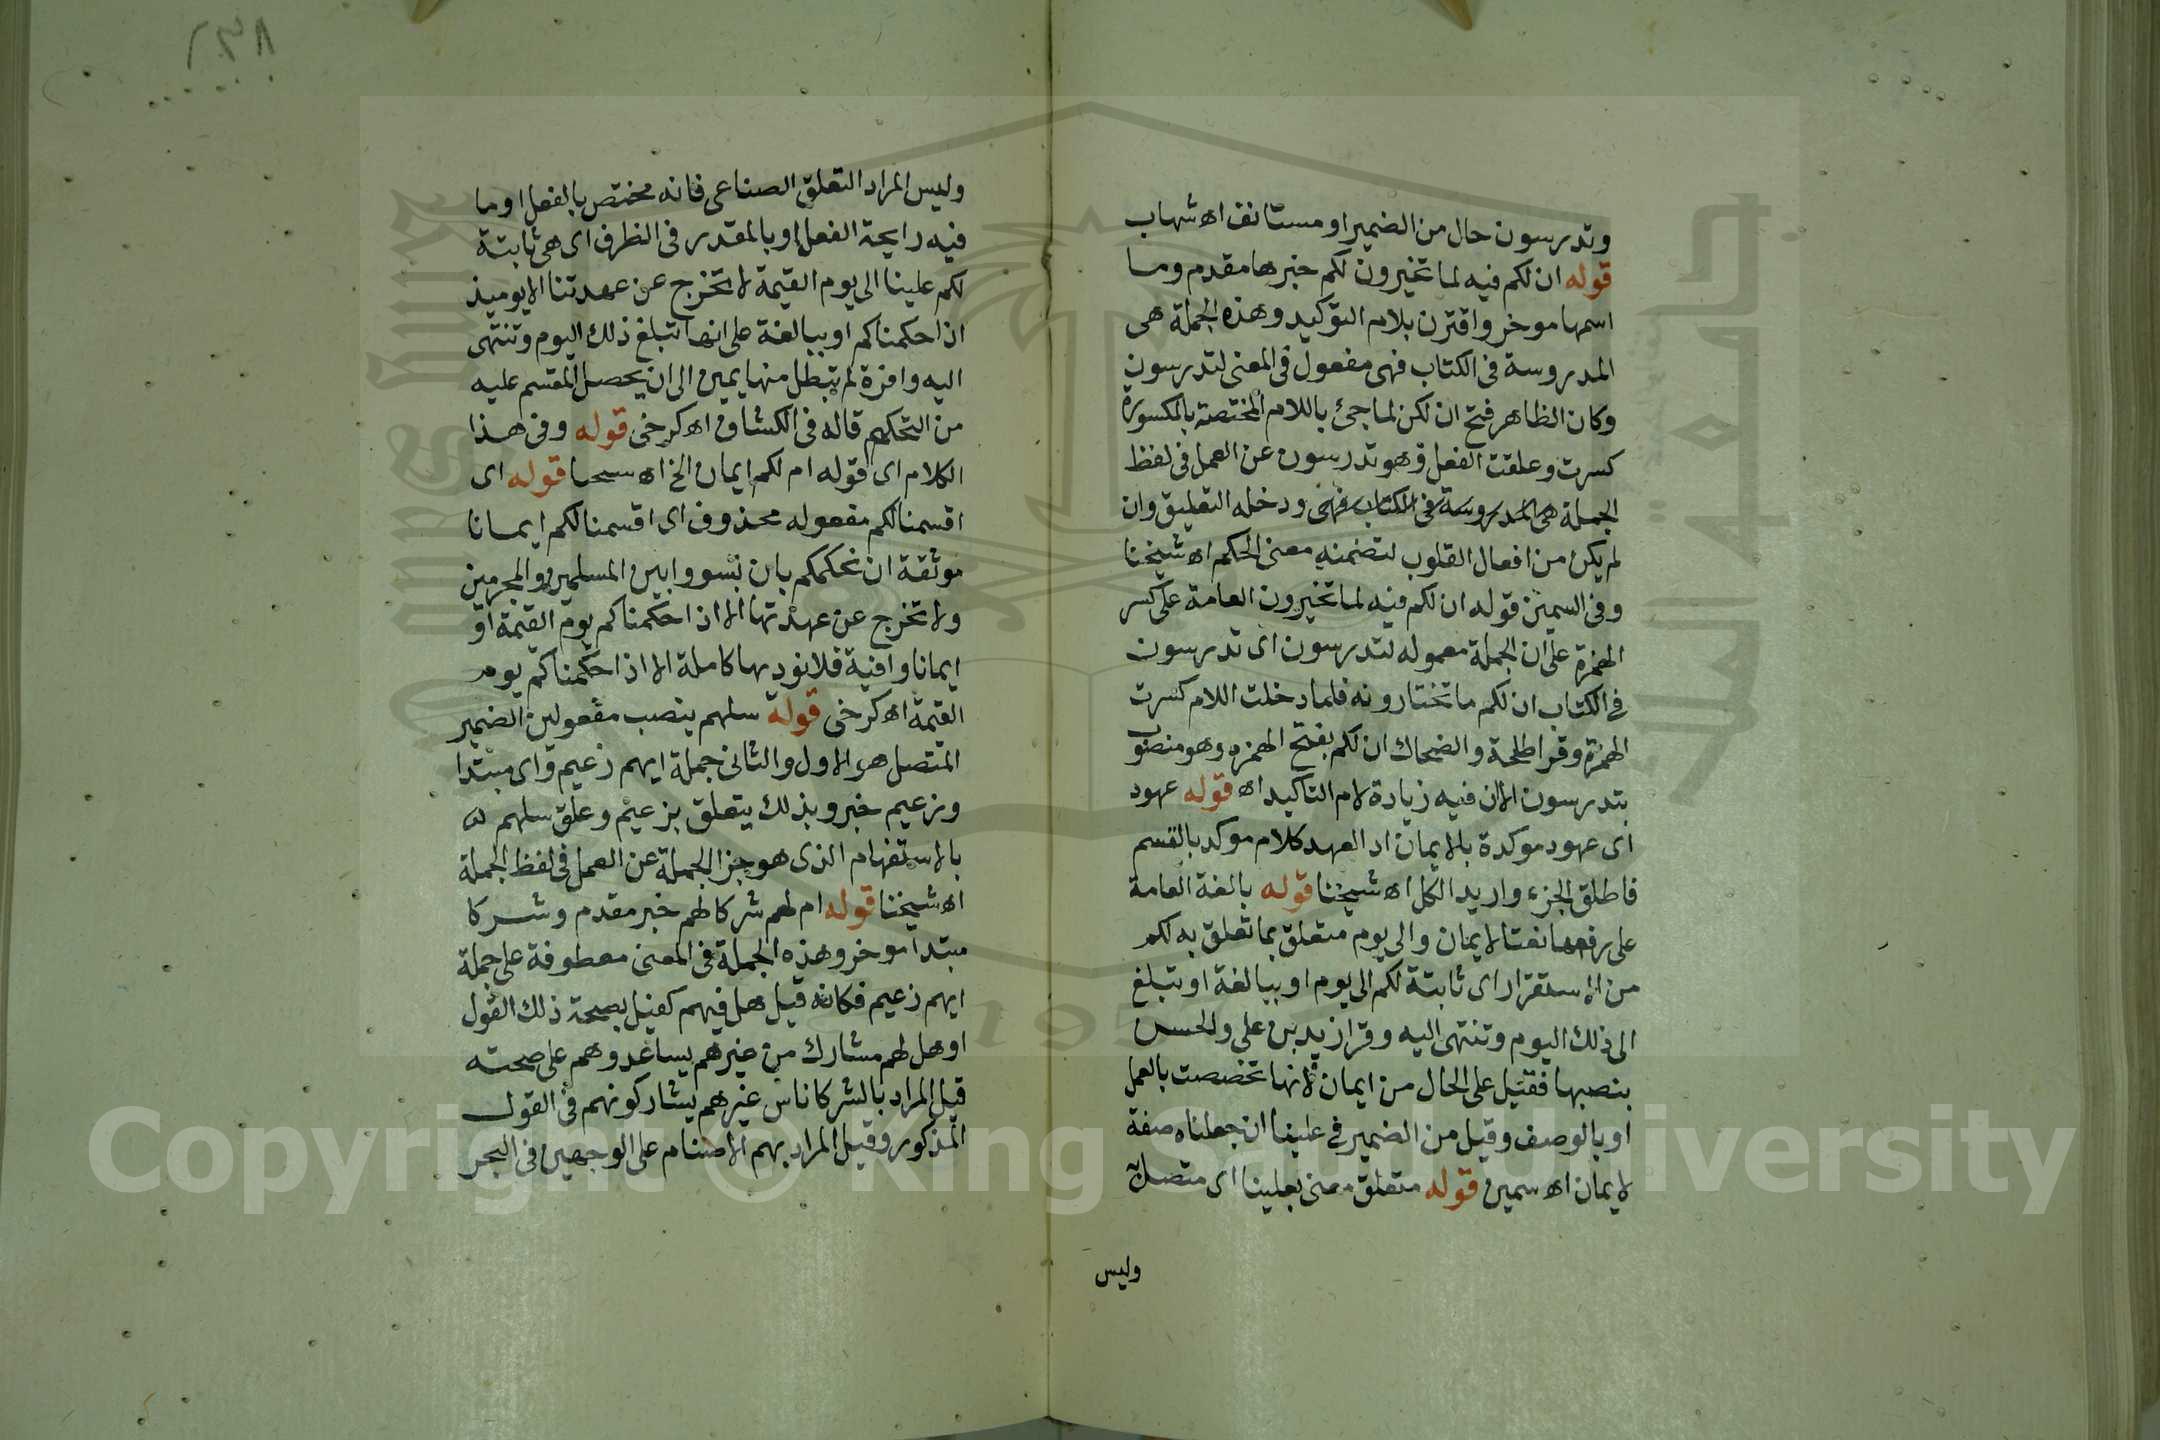 وتدرسون حال من الضمير او مستانف اه شهاب
قوله ان لكم فيه لما تخيرون لكم خبرها مقدم وما
اسمها موخر واقترن بلام التوكيد وهذه الجملة هى
المدروسة فى الكتاب فهى مفعول فى المعنى لتدرسون
وكان الظاهر فتح ان لكن لما جئ باللام المختصة بالمكسورة
كسرت وعلقت الفعل وهو تدرسون عن العمل فى لفظ
الجملة هى المدروسة فى الكتاب فهى ودخله التعليق وان
لم يكن من افعال القلوب لتضمنه معنى الحكم اه شيخنا
وفى السمين قوله ان لكم فيه لما تخيرون العامة على كسر
الهمزة على ان الجملة معموله لتدرسون اى تدرسون
فى الكتاب ان لكم ما تختارونه فلما دخلت اللام كسرت
الهمزة وقرا طلحة والضحاك ان لكم بفتح الهمزه وهو منصوب
بتدرسون الا ان فيه زيادة لام التاكيد اه قوله عهود
اى عهود موكدة بالايمان اد العهد كلام موكد بالقسم
فاطلق الجزء واريد الكل اه شيخنا قوله بالغة العامة
على رفعها نعتا لايمان والى يوم متعلق بما تعلق به لكم
من الاستقرار اى ثابتة لكم الى يوم او ببالغة او تبلغ
الى ذلك اليوم وتنتهى اليه وقرا زيد بن على والحسن
بنصبها فقيل على الحال من ايمان لانها تخصصت بالعمل
او بالوصف وقيل من الضمير فى علينا ان جعلناه صفة
لايمان اه سمين قوله متعلق معنى بعلينا اى متصل
وليس
وليس المراد التعلق الصناعى فانه مختص بالفعل او ما
فيه رايحة الفعل او بالمقدر فى الظرف اى هى ثابتة
لكم علينا الى يوم القيمة لا تخرج عن عهدتنا الا يوميذ
ان احكمناكم او ببالغة على انها تبلغ ذلك اليوم وتنتهى
اليه وافرة لم تبطل منها يمين الى ان يحصل المقسم عليه
من التحكيم قاله فى الكشاف اه كرخى قوله وفى هذا
الكلام اى قوله ام لكم ايمان الخ اه قوله اى
اقسمنا لكم مفعوله محذوف اى اقسمنا لكم ايمانا
موثقة ان نحكمكم بان نسووا بين المسلمين والمجرمين
ولا تخرج عن عهدتها الا اذ احكمناكم يوم القيمة او
ايمانا وافية فلا نوديها كاملة الا اذا احكمناكم يوم
القيمة اه كرخى قوله سلهم ينصب مفعولين الضمير
المتصل هو الاول والثانى جملة ايهم زعيم واى مبتدا
وزعيم خبر وبذلك يتعلق بزعيم وعلق سلهم
بالاستفهام الذى هو جزا الجملة عن العمل فى لفظ الجملة
اه شيخنا قوله ام لهم شركا لهم خبر مقدم وشركا
مبتدا موخر وهذه الجملة فى المعنى معطوفة على جملة
ايهم زعيم فكانه قيل هل فيهم كفيل بصحة ذلك القول
او هل لهم مشارك من غيرهم يساعدوهم على صحته
قيل المراد بالشركا ناس غيرهم يشاركونهم فى القول
المذكور وقيل المراد بهم الاصنام على الوجهين فى البحر
Copyright © King Saud University